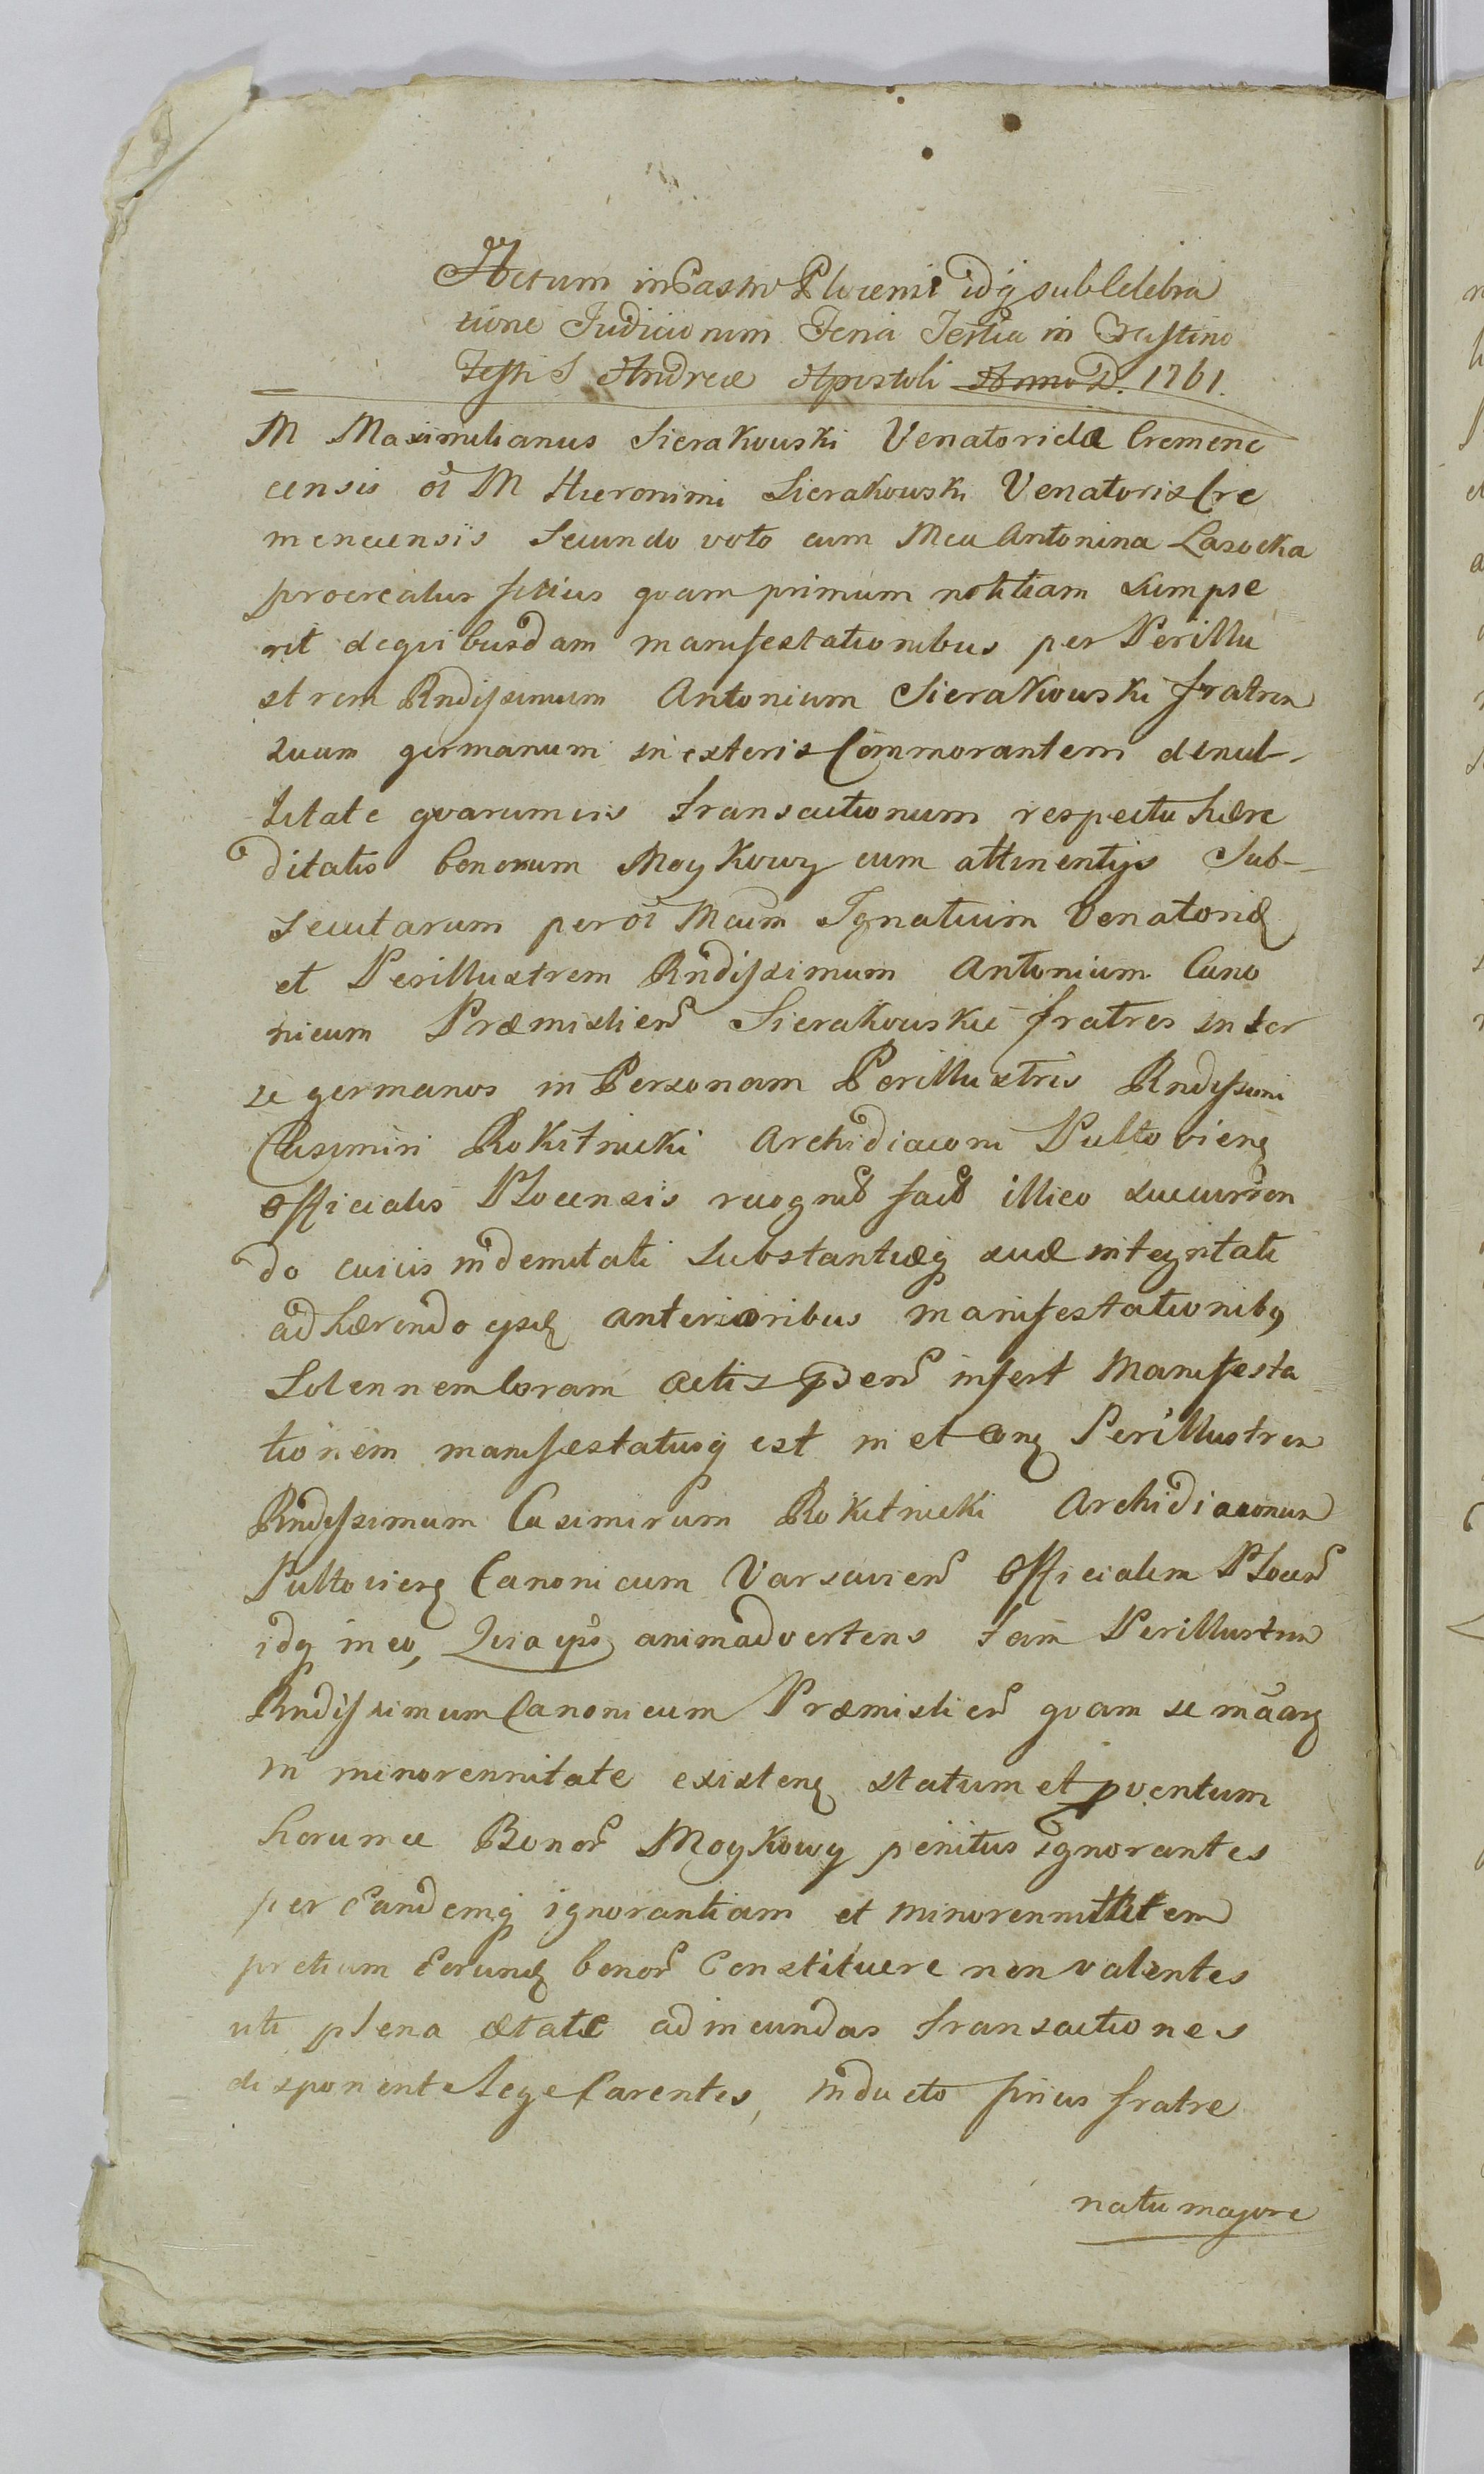 Actum in Castro Plocensi idq sub Celebra
tione Judiciorum Feria Tertia in Crastino
Festi S Andreæ Apostoli Anno D. 1761.
M Maximilianus Sierakowski Venatoridæ Cremene
censis oi M Hieronimi Sierakowski Venatoris Cre
menecensis Secundo voto cum Mca Antonina Lasocka
procreatus filius qvam primum notitiam sumpse
rit de qvibusdam manifestationibus per Perillu
strem Rndissimum Antonium Sierakowski fratrem
suum germanum in exteris Commorantem de nul-
litate qvarumvis transactionum respectu hære
ditatis bonorum Moykowy cum attinentijs Sub-
secutarum per oi Mcum Ignatium Venatorid
et Perillustrem Rndissimum Antonium Cano
nicum Præmislien Sierakowskie fratres inter
se germanos in Personam Perillustris Rndissimi
Casimiri Rokitnicki Archidiaconi Pultovien
Officialis Plocensis recognit fact illico succurren
do cuivis indemnitati Substantiæq suæ integritati
adhærendo ejusd anterioribus manifestationibq
Solennem Coram actis pden infert Manifesta
tionem manifestatusq est in et con Perillustrem
Rndissimum Casimirum Rokitnicki Archidiaconum
Pultovien Canonicum Varsavien Officialem Plocen
idq in eo, Quia ips animadvertens tam Perillustrem
Rndissimum Canonicum Præmislien qvam se mãan
in minorennitate existen statum et pventum
horumce Bonor Moykowy penitus ignorantes
per Eandemq ignorantiam et minorennitatem
pretium Eorund bonor Constituere non valentes
uti plena ætate ad ineundas transactiones
disponente lege Carentes, inducto prius fratre
natu majore